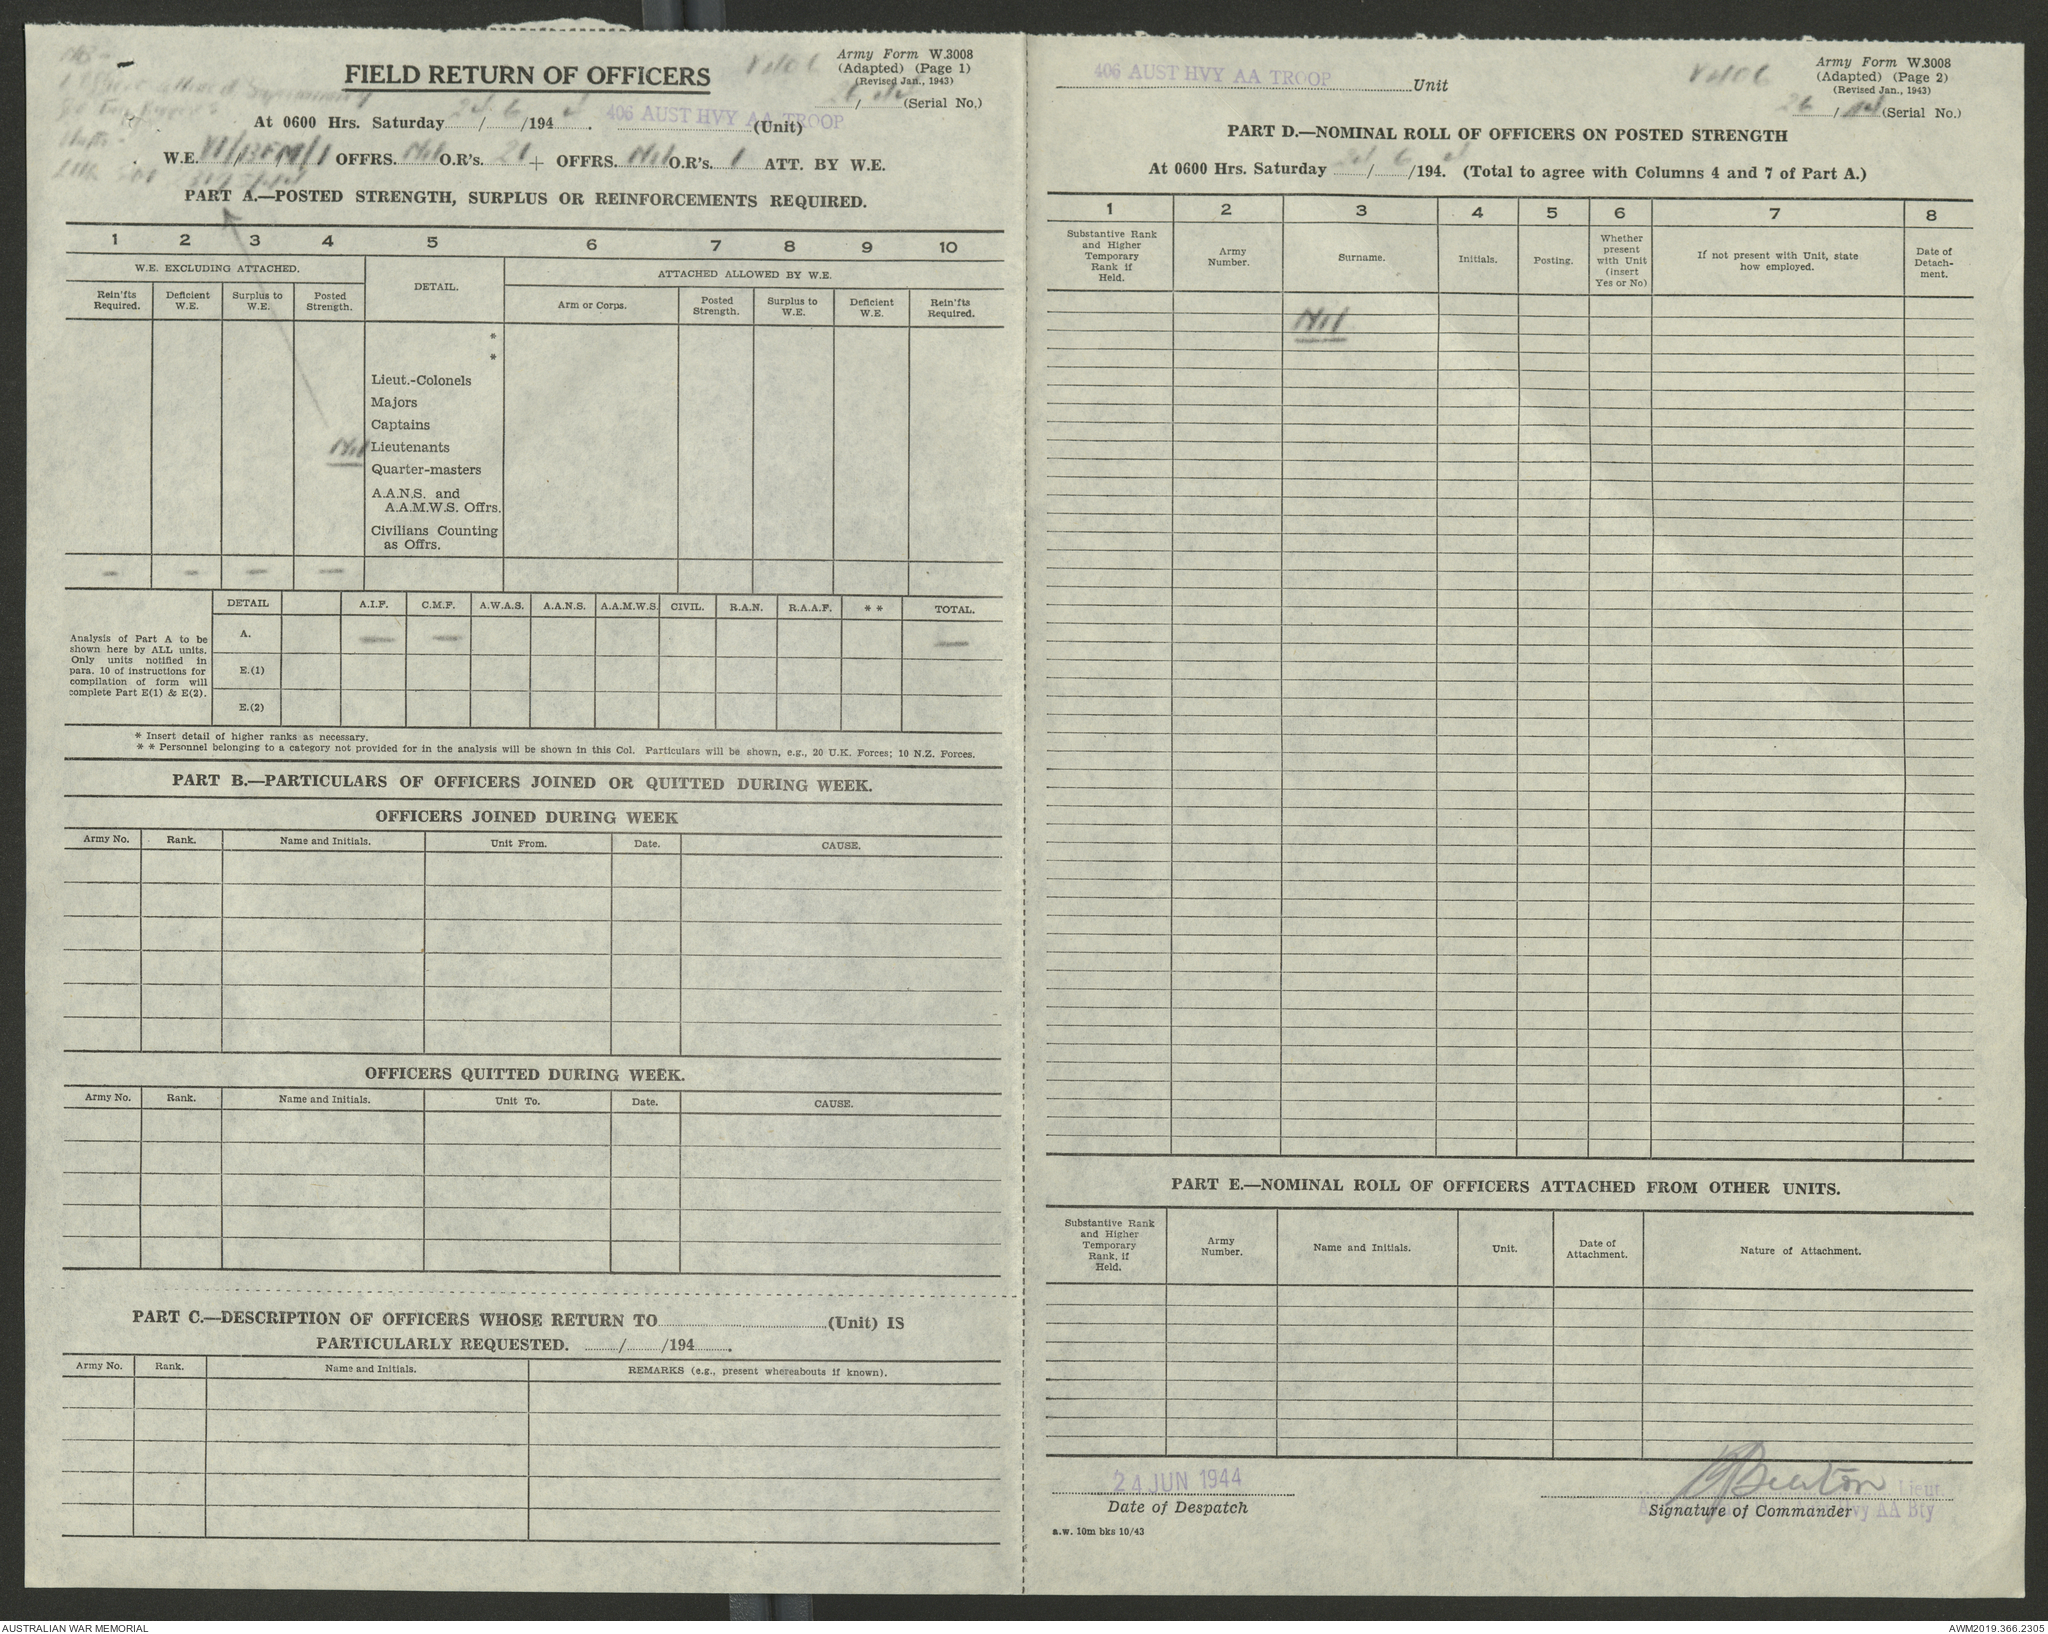 FIELD RETURN OF OFFICERS
Army Form W.3008
(Adapted) (Page 1)
(Revised Jan., 1943)
26/ (Serial No.)
At 0600 Hrs. Saturday 24/6/194 . 406 AUST HVY AA TROOP (Unit)
W.E. OFFRS. Nil O.R's. 21 + OFFRS. Nil O.R's. 1 ATT. BY W.E.
PART A.—POSTED STRENGTH, SURPLUS OR REINFORCEMENTS REQUIRED.
1 2 3 4 5 6 7 8 9 10
W.E. EXCLUDING ATTACHED. DETAIL. ATTACHED ALLOWED BY W.E.
Rein'fts Required. Deficient W.E. Surplus to W.E. Posted Strength. Arm or Corps. Posted Strength. Surplus to W.E. Deficient W.E. Rein'fts Required.
*
*
Lieut.-Colonels
Majors
Captains
Nil Lieutenants
Quarter-masters
A.A.N.S. and
A.A.M.W.S. Offrs.
Civilians Counting
as Offrs.
— — — —
DETAIL A.I.F. C.M.F. A.W.A.S. A.A.N.S. A.A.M.W.S. CIVIL. R.A.N. R.A.A.F. * * TOTAL.
Analysis of Part A to be
shown here by ALL units.
Only units notified in
para. 10 of instructions for
compilation of form will
complete Part E(1) & E(2).
A. — — —
E.(1)
E.(2)
* Insert detail of higher ranks as necessary.
* * Personnel belonging to a category not provided for in the analysis will be shown in this Col. Particulars will be shown, e.g., 20 U.K. Forces; 10 N.Z. Forces.
PART B.—PARTICULARS OF OFFICERS JOINED OR QUITTED DURING WEEK.
OFFICERS JOINED DURING WEEK
Army No. Rank. Name and Initials. Unit From. Date. CAUSE.
OFFICERS QUITTED DURING WEEK.
Army No. Rank. Name and Initials. Unit To. Date. CAUSE.
PART C.—DESCRIPTION OF OFFICERS WHOSE RETURN TO (Unit) IS
PARTICULARLY REQUESTED. / /194 .
Army No. Rank. Name and Initials. REMARKS (e.g., present whereabouts if known).
406 AUST HVY AA TROOP Unit
Army Form W.3008
(Adapted) (Page 2)
(Revised Jan., 1943)
26/ (Serial No.)
PART D.—NOMINAL ROLL OF OFFICERS ON POSTED STRENGTH
At 0600 Hrs. Saturday 24/6/194. (Total to agree with Columns 4 and 7 of Part A.)
1 2 3 4 5 6 7 8
Substantive Rank and Higher Temporary Rank if Held. Army Number. Surname. Initials. Posting. Whether present with Unit (insert Yes or No) If not present with Unit, state how employed. Date of Detach-ment.
Nil
PART E.—NOMINAL ROLL OF OFFICERS ATTACHED FROM OTHER UNITS.
Substantive Rank and Higher Temporary Rank, if Held. Army Number. Name and Initials. Unit. Date of Attachment. Nature of Attachment.
24 JUN 1944
Date of Despatch
Lieut.
Signature of Commander
Hvy AA Bty
a.w. 10m bks 10/43
AUSTRALIAN WAR MEMORIAL
AWM2019.366.2305